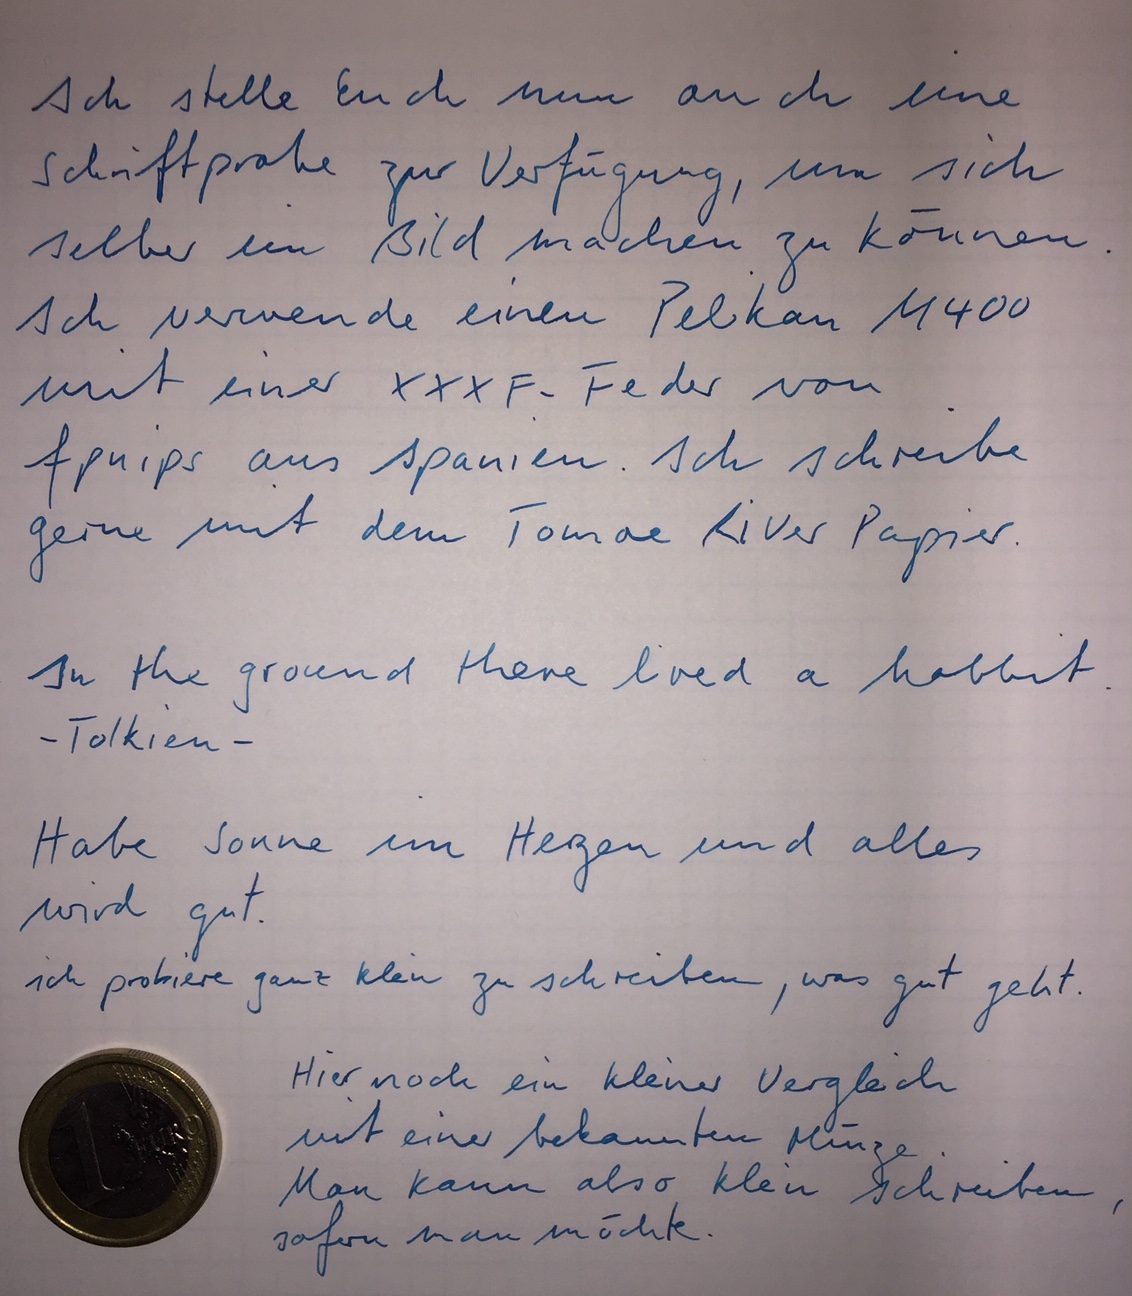 Ich stelle Euch nun auch eine
Schriftprobe zur Verfügung, um sich
selber ein Bild machen zu können.
Ich verwende einen Pelikan M400
mit einer XXXF-Feder von
fpnips aus Spanien. Ich schreibe
gerne mit dem Tomoe River Papier.
In the ground there lived a hobbit.
-Tolkien-
Habe Sonne im Herzen und alles
wird gut.
ich probiere ganz klein zu schreiben, was gut geht.
Hier noch ein kleiner Vergleich
mit einer bekannten Münze.
Man kann also klein schreiben,
sofern man möchte.
1
EURO